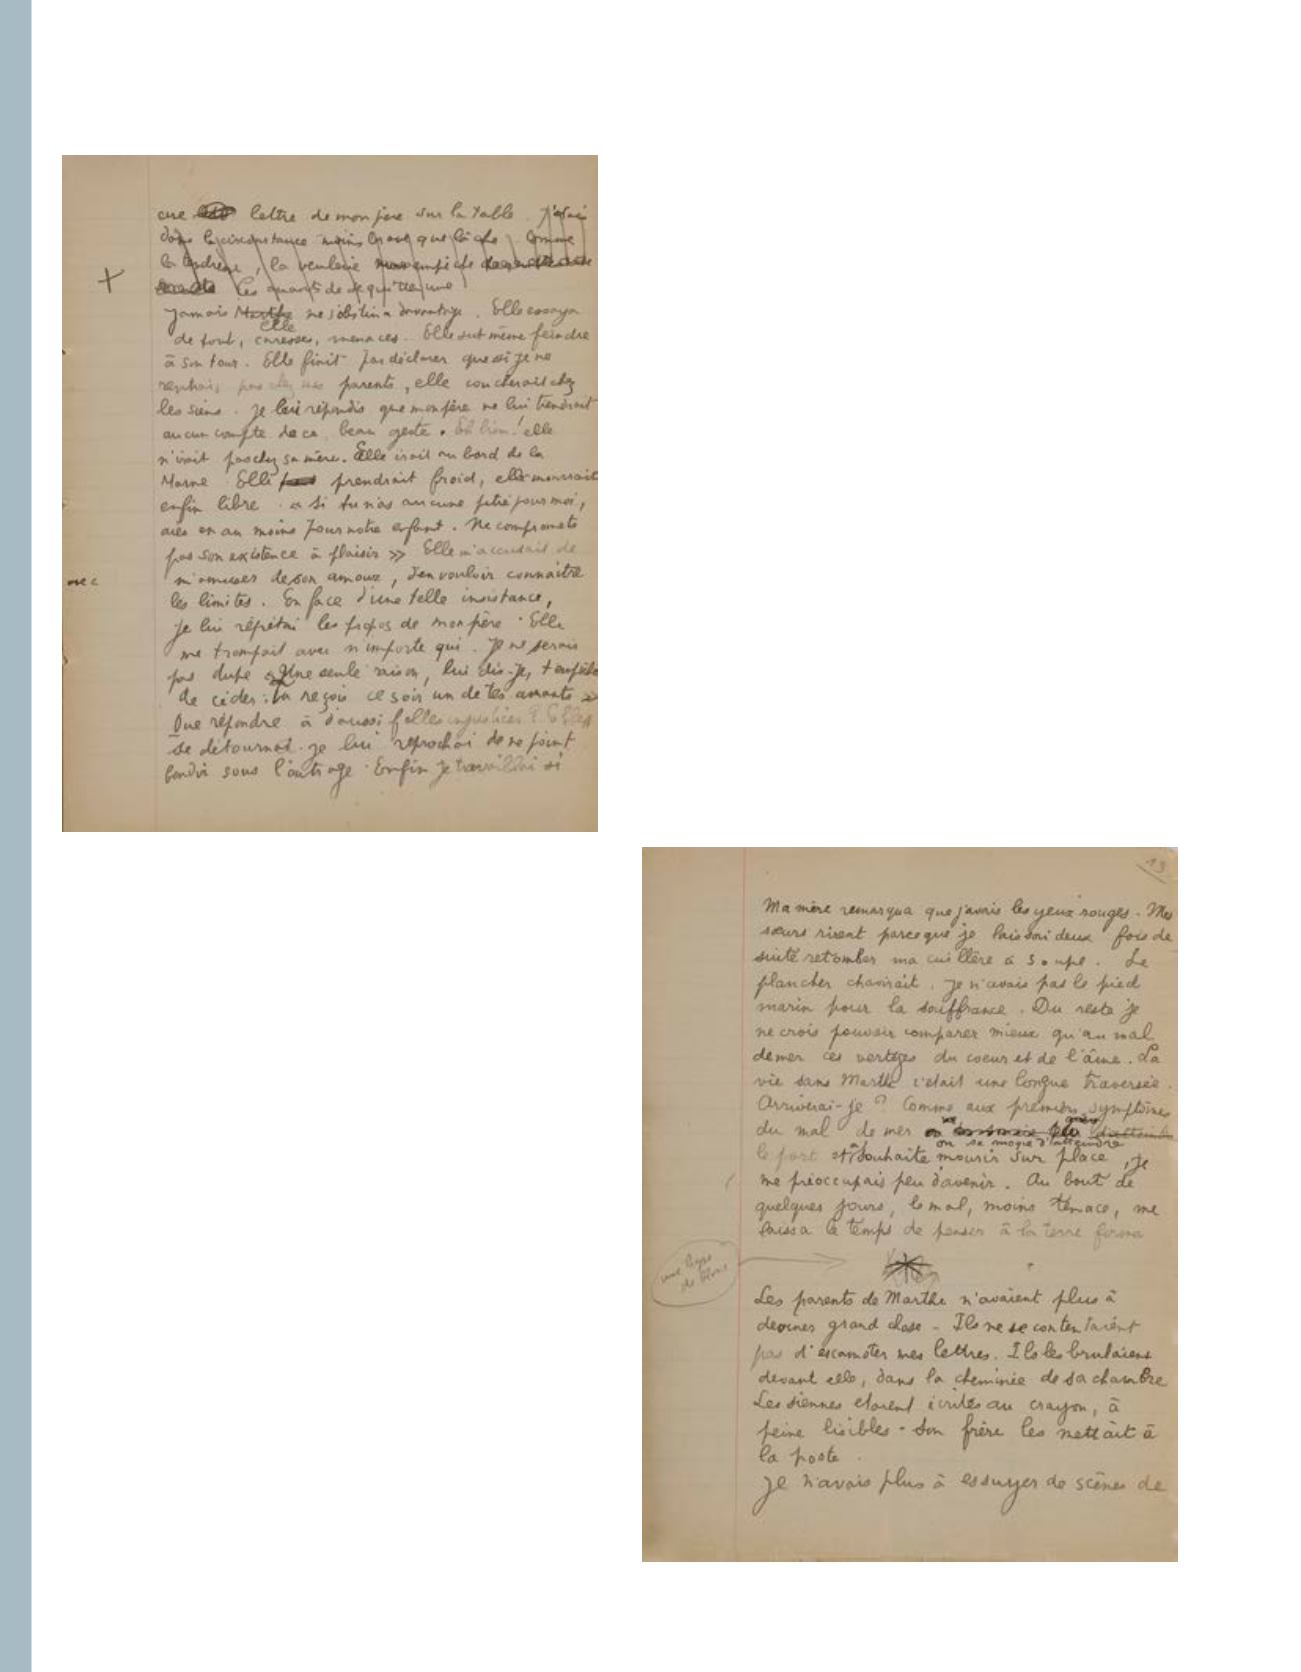 lettre de mon père sur la table. j'étais
dans la circonstance moins brave que lâche. Comme
la tendresse, la veulerie
les amants de se quitter
+
Jamais Marthe ne s'obstina davantage. Elle essaya
elle
de tout, caresses, menaces. Elle sut même feindre
à son tour. Elle finit par déclarer que si je ne
rentrais pas chez mes parents, elle coucherait chez
les siens. Je lui répondis que mon père ne lui tiendrait
aucun compte de ce beau geste. Eh bien! elle
n'irait pas chez sa mère. Elle irait au bord de la
Marne Elle prendrait froid, elle mourrait
enfin libre. « Si tu n'as aucune pitié pour moi,
aies en au moins pour notre enfant. Ne compromets
pas son existence à plaisir » Elle m'accusait de
m'amuser de son amour, d'en vouloir connaître
avec
les limites. En face d'une telle insistance,
je lui répétai les propos de mon père. Elle
me trompait avec n'importe qui. Je ne serais
pas dupe « Une seule raison, lui dis-je, t'empêche
de céder: tu reçois ce soir un de tes amants »
Que répondre à d'aussi folles injustices? Elle
se détourna. je lui reprochai de ne point
bondir sous l'outrage. Enfin je travaillai si
13
Ma mère remarqua que j'avais les yeux rouges. Mes
sœurs rirent parce que je laissai deux fois de
suite retomber ma cuillère à soupe. Le
plancher chavirait. Je n'avais pas le pied
marin pour la souffrance. Du reste je
ne crois pouvoir comparer mieux qu'au mal
de mer ces vertiges du coeur et de l'âme. La
vie sans Marthe c'était une longue traversée.
Arriverai-je? Comme aux premiers symptômes
du mal de mer
on se moque d'atteindre
le port et souhaite mourir sur place, je
me préoccupais peu d'avenir. Au bout de
quelques jours, le mal, moins tenace, me
laissa le temps de penser à la terre ferme
une ligne
de blanc
Les parents de Marthe n'avaient plus à
deviner grand chose - Ils ne se contentaient
pas d'escamoter mes lettres. Ils les brulaient
devant elle, dans la cheminée de sa chambre
Les siennes étaient écrites au crayon, à
peine lisibles - Son frère les mettait à
la poste.
Je n'avais plus à essuyer de scènes de